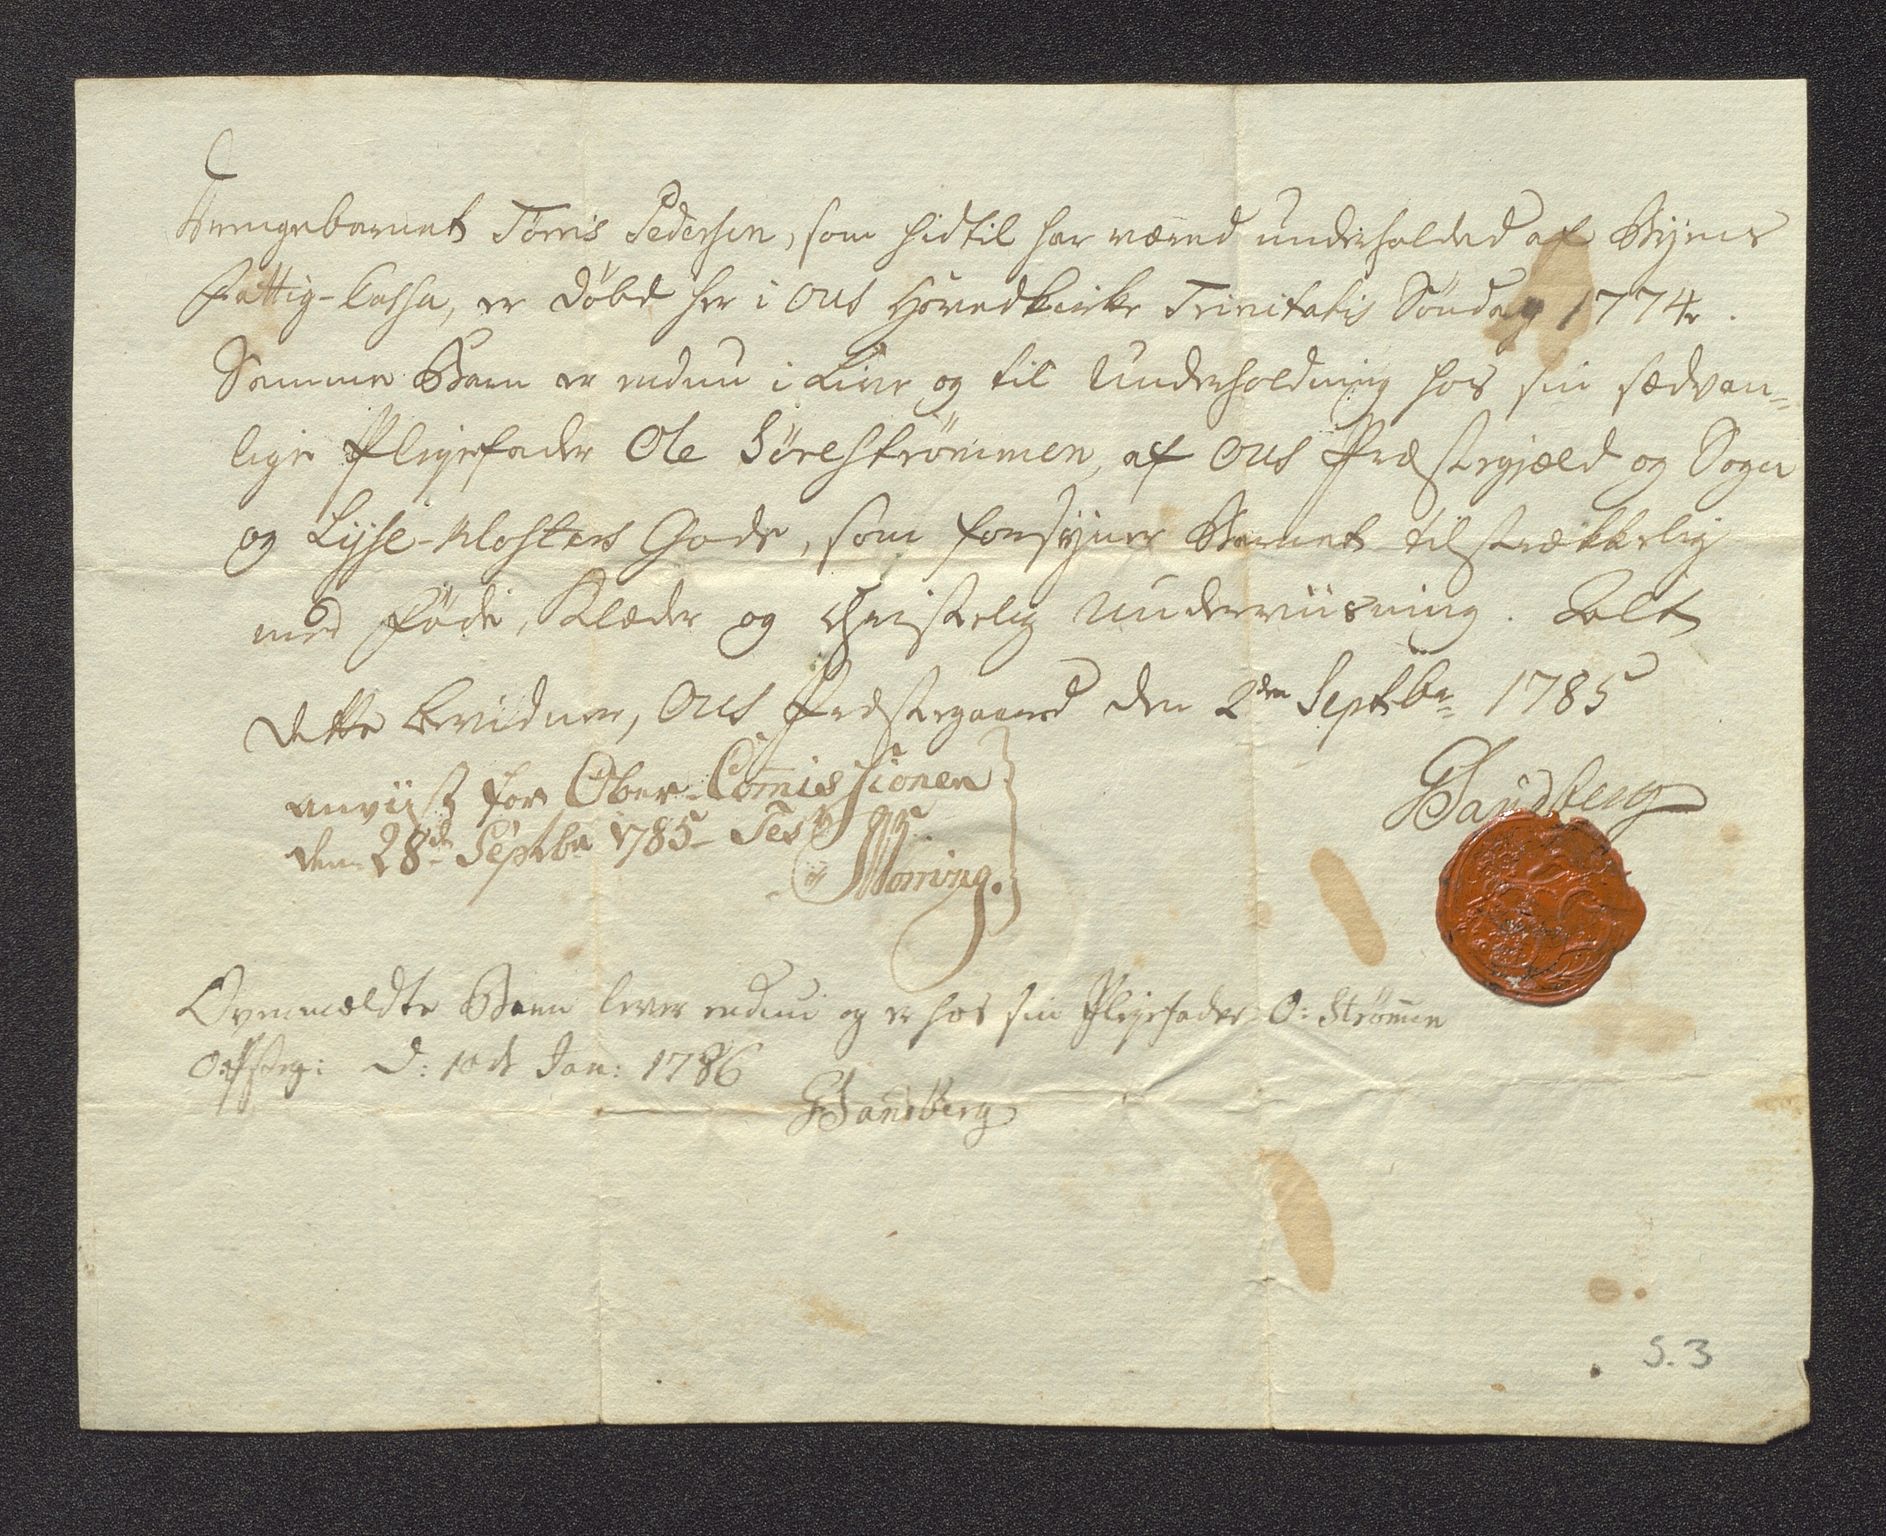 Drengebarnet Tørris Pedersen, som hidtil har været underholded af Byens
Fattig-Cassa, er døbt her i Ous Hovedkirke Trinitatis Søndag 1774.
Samme Barn er endnu i Live og til Underholdning hos sin sædvan-
lige Plejefader Ole Sørestrømmen, af Ous Præstegjæld og Sogn
og Lysse-Klosters Gods, som forsyner Barnet tilstrækkelig
med Føde, Klæder og christelig Underviisning. Salt
dette bevidner, Ous Præstegaard den 2den Septbr 1785
GSandberg
anviist for Ober-Comissionen
den 28de Septbr 1785 Test
Morring.
Ovenmældte Barn lever endnu og er hos sin Plejefader O: Strømen
d: 10de Jan: 1786
GSandberg
S. 3